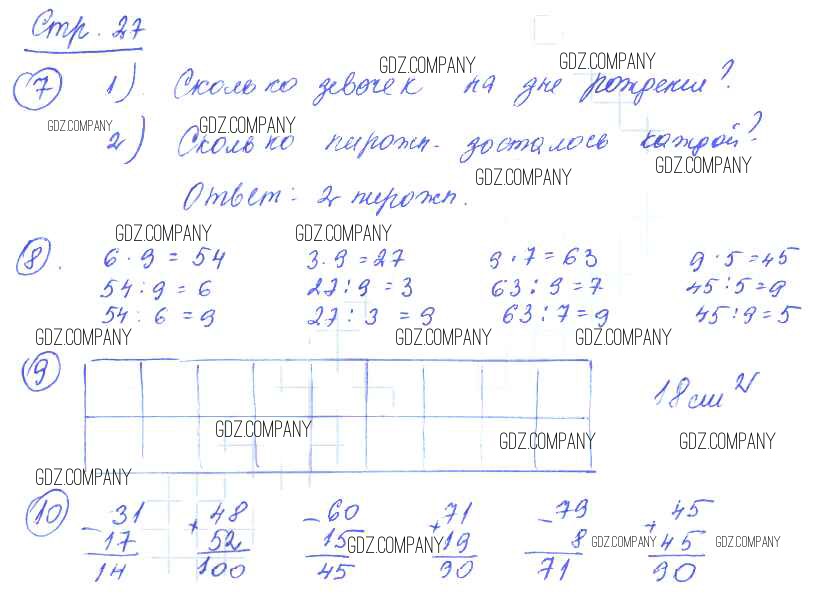 Стр. 27
GDZ.COMPANY GDZ.COMPANY
7 1). Сколько девочек на дне рождении?
GDZ.COMPANY GDZ.COMPANY
2) Сколько пирожн. досталось каждой?
GDZ.COMPANY GDZ.COMPANY
Ответ: 2 пирожн.
GDZ.COMPANY GDZ.COMPANY
8. 6 · 9 = 54 3 · 9 = 27 9 · 7 = 63 9 · 5 = 45
54 : 9 = 6 27 : 9 = 3 63 : 9 = 7 45 : 5 = 9
54 : 6 = 9 27 : 3 = 9 63 : 7 = 9 45 : 9 = 5
GDZ.COMPANY GDZ.COMPANY GDZ.COMPANY
9 18 см²
GDZ.COMPANY GDZ.COMPANY GDZ.COMPANY
GDZ.COMPANY
10 - 31 + 48 - 60 + 71 - 79 + 45
17 52 15 19 8 45
GDZ.COMPANY GDZ.COMPANY GDZ.COMPANY
14 100 45 90 71 90